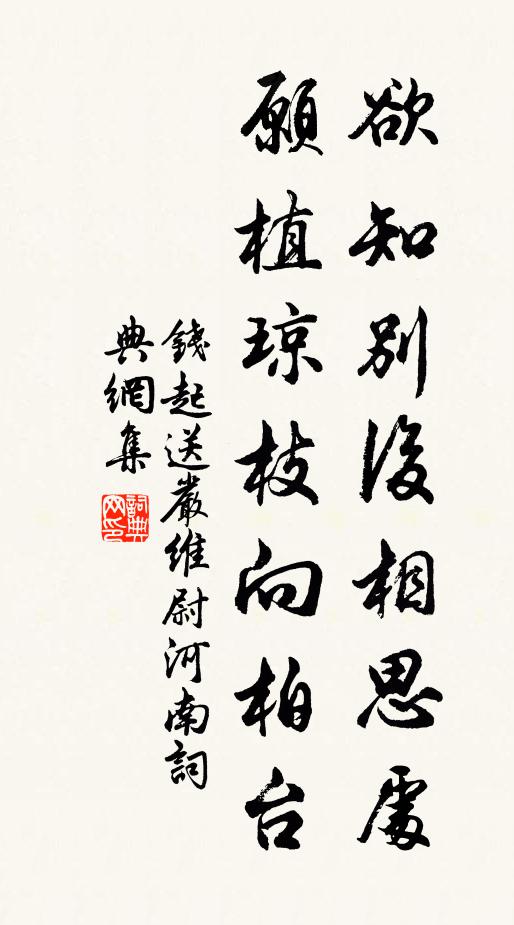 欲知別後相思處
願植瓊枝向柏台
錢起送嚴維尉河南詞
典網集
詞典網印